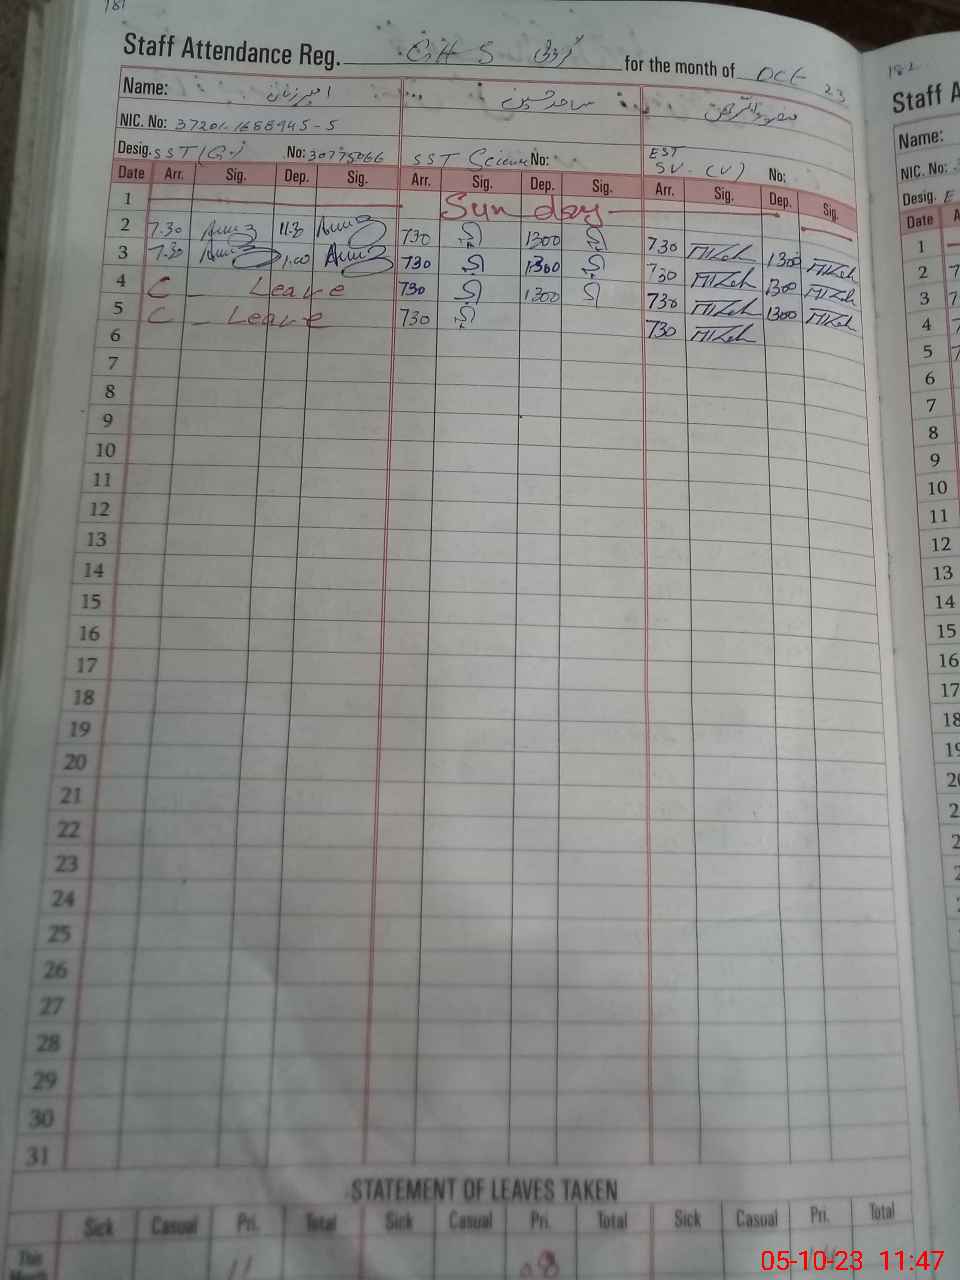 181
Staff Attendance Reg. GHS for the month of Oct 23
Name: امیر زمان ساجد حسین
NIC. No: 37201-1688945-5
Desig. SST (G) No: 30775066 SST Science No: EST SV- (V) No:
Date Arr. Sig. Dep. Sig. Arr. Sig. Dep. Sig. Arr. Sig. Dep. Sig.
1 Sunday
2 7.30 11.30 730 1300 730 1300
3 7.30 1.00 730 1300 730 1300
4 C - Leave 730 1300 730 1300
5 C - Leave 730 730
6
7
8
9
10
11
12
13
14
15
16
17
18
19
20
21
22
23
24
25
26
27
28
29
30
31
STATEMENT OF LEAVES TAKEN
Sick Casual Pri. Total Sick Casual Pri. Total Sick Casual Pri. Total
This 11 08
182
Staff A
Name:
NIC. No:
Desig. E
Date A
1
2 7
3 7
4 7
5 7
6
7
8
9
10
11
12
13
14
15
16
17
18
05-10-23 11:47